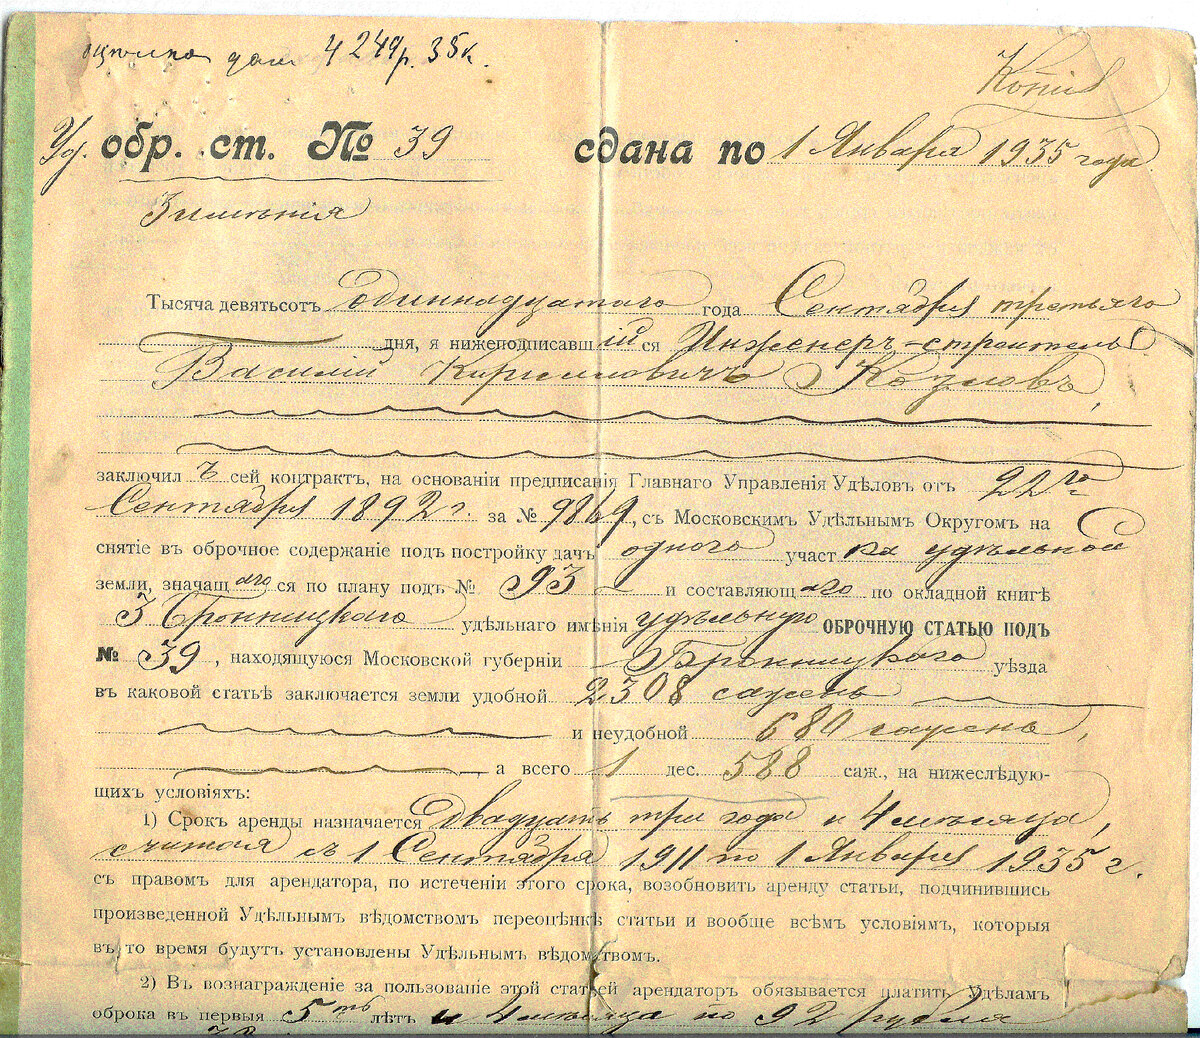 оцѣнка дачи 4249р. 35к.
Копія
Уд. обр. ст. № 39 сдана по 1 Января 1935 года
Имѣнія
Тысяча девятьсотъ Одиннадцатаго года Сентября третьяго
дня, я нижеподписавшійся Инженеръ-строитель
Василій Кирилловичъ Козловъ,
заключилъ сей контрактъ, на основаніи предписанія Главнаго Управленія Удѣловъ отъ 22го
Сентября 1892 г. за № 9869, съ Московскимъ Удѣльнымъ Округомъ на
снятіе въ оброчное содержаніе подъ постройку дачъ одного участка удѣльной
земли, значащагося по плану подъ № 93 и составляющаго по окладной книгѣ
3 Бронницкаго удѣльнаго имѣнія удѣльную ОБРОЧНУЮ СТАТЬЮ ПОДЪ
№ 39, находящуюся Московской губерніи Бронницкаго уѣзда
въ каковой статьѣ заключается земли удобной 2308 сажень
и неудобной 680 сажень,
а всего 1 дес. 588 саж., на нижеслѣдую-
щихъ условіяхъ:
1) Срокъ аренды назначается Двадцать три года и 4 мѣсяца,
считая съ 1 Сентября 1911 по 1 Января 1935 г.
съ правомъ для арендатора, по истеченіи этого срока, возобновить аренду статьи, подчинившись
произведенной Удѣльнымъ вѣдомствомъ переоцѣнкѣ статьи и вообще всѣмъ условіямъ, которыя
въ то время будутъ установлены Удѣльнымъ вѣдомствомъ.
2) Въ вознагражденіе за пользованіе этой статьей арендаторъ обязывается платить Удѣламъ
оброка въ первыя 5ть лѣтъ и 4 мѣсяца по 92 рубля